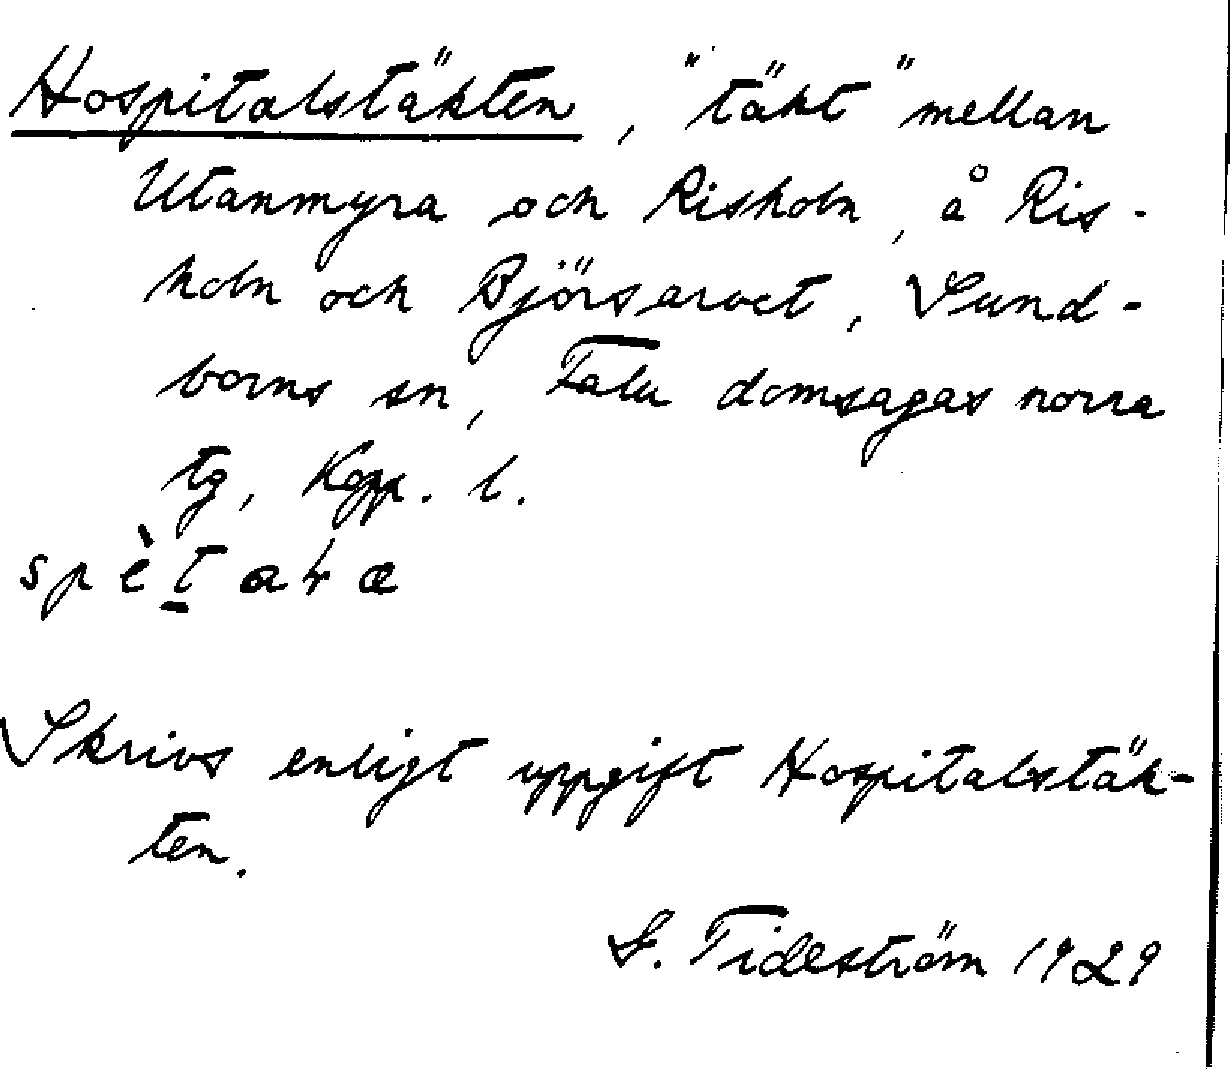 Hospitalstäkten, "täkt" mellan
Utanmyra och Risholn, å Ris-
holn och Björsarvet, Sund-
borns sn, Falu domsagas norra
tg, Kopp. l.
Skrivs enligt uppgift Hospitalstäk-
ten.
G. Tideström 1929